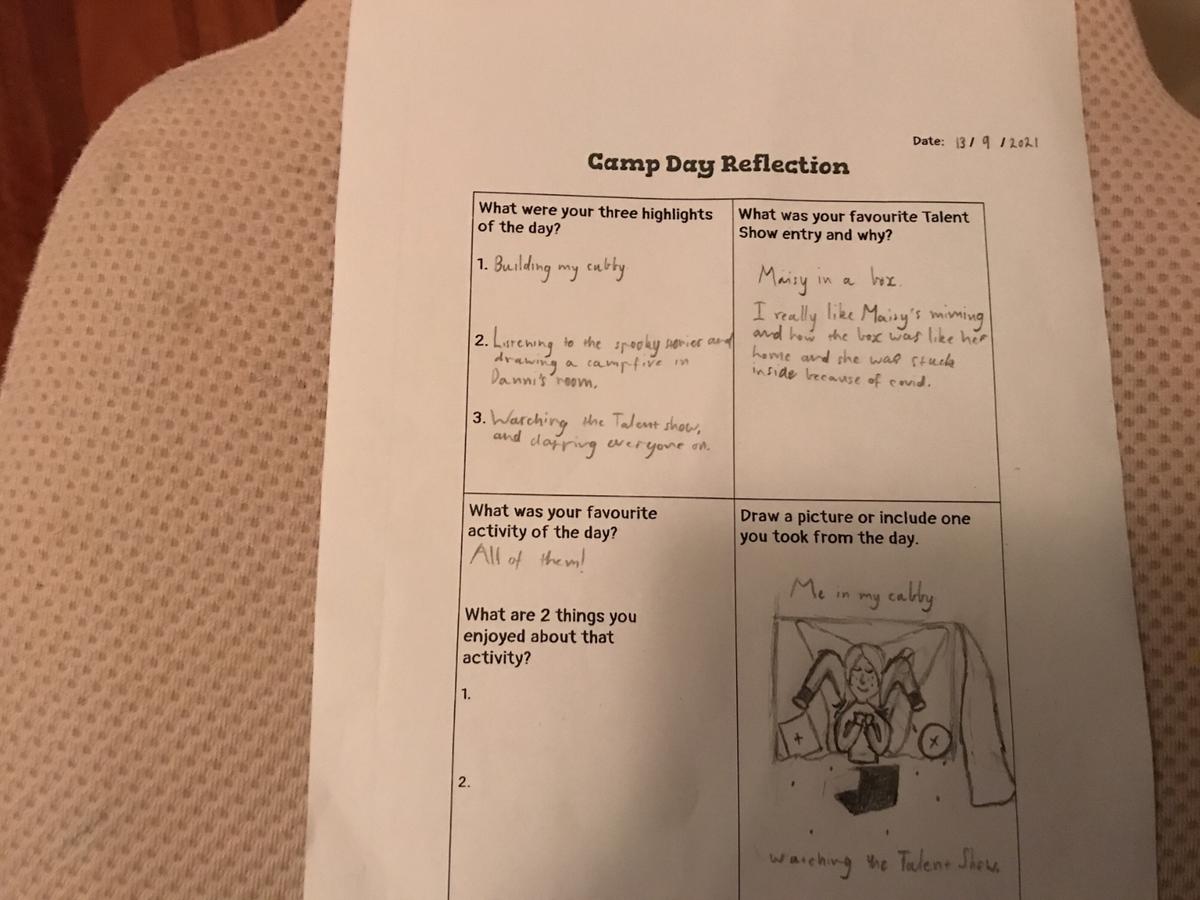 Date: 13 / 9 / 2021
Camp Day Reflection
What were your three highlights
of the day?
1. Building my cubby.
2. Listening to the spooky stories and
drawing a campfire in
Danni's room.
3. Watching the Talent show,
and clapping everyone on.
What was your favourite Talent
Show entry and why?
Maisy in a box.
I really like Maisy's miming
and how the box was like her
home and she was stuck
inside because of covid.
What was your favourite
activity of the day?
All of them!
What are 2 things you
enjoyed about that
activity?
1.
2.
Draw a picture or include one
you took from the day.
Me in my cubby
watching the Talent Show.